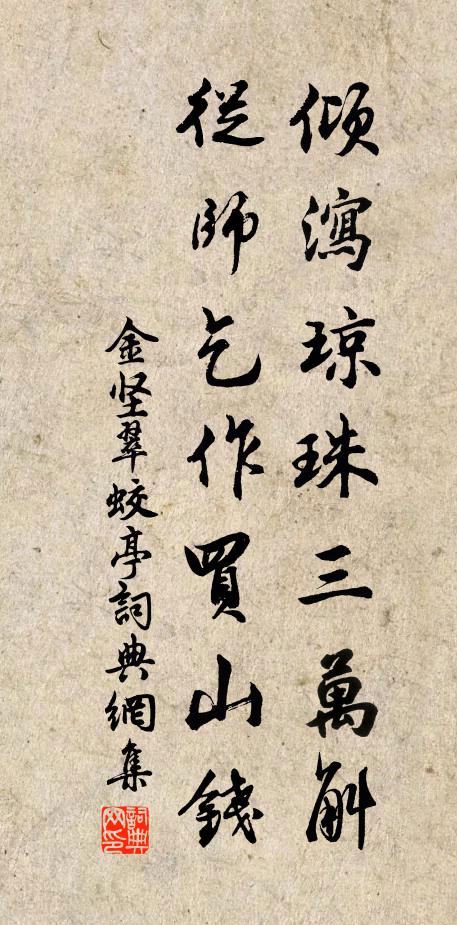 傾瀉琼珠三萬斛
從師乞作買山錢
金坚翠蛟亭詞典網集
詞典网印